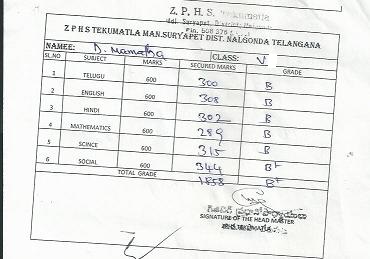 Z. P. H. S. Tekumatla
Mdl. Suryapet, District,
Pin. 508 376
Z P H S TEKUMATLA MAN.SURYAPET DIST. NALGONDA TELANGANA
NAMEE: D. Mamatha CLASS: V
SL.NO SUBJECT MARKS SECURED MARKS GRADE
1 TELUGU 600 300 B
2 ENGLISH 600 308 B
3 HINDI 600 302 B
4 MATHEMATICS 600 289 B
5 SCINCE 600 315 B
6 SOCIAL 600 344 B+
TOTAL GRADE 1858 B+
SIGNATURE OF THE HEAD MASTER